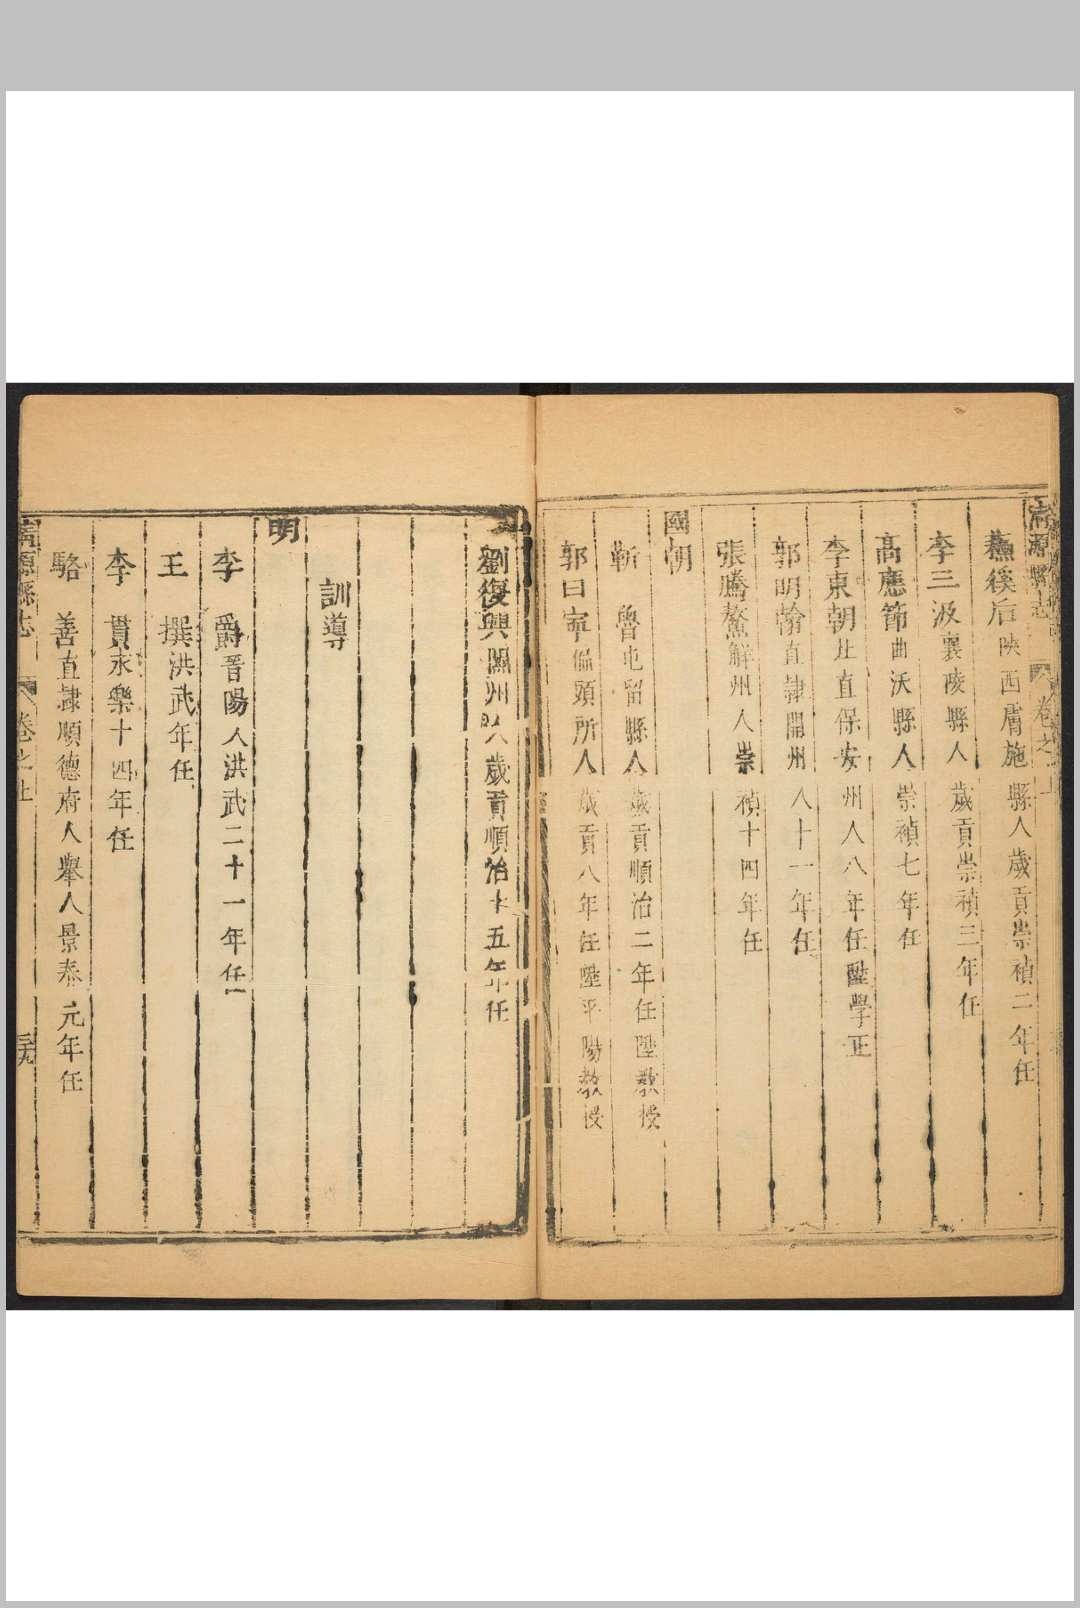 清源縣志
卷之上
蘓徯后陝西膚施縣人歲貢崇禎二年任
李三汲襄陵縣人歲貢崇禎三年任
高應節曲沃縣人崇禎七年任
李東朝北直保安州人八年任陞學正
郭明翰直隸開州人十一年任
張騰鰲解州人崇禎十四年任
國朝
靳魯屯留縣人歲貢順治二年任陞教授
郭曰寧偏頭所人歲貢八年任陞平陽教授
劉復興隰州人歲貢順治十五年任
訓導
明
李爵晋陽人洪武二十一年任
王撰洪武年任
李貫永樂十四年任
駱善直隸順德府人舉人景泰元年任
清源縣志
卷之上
三十九